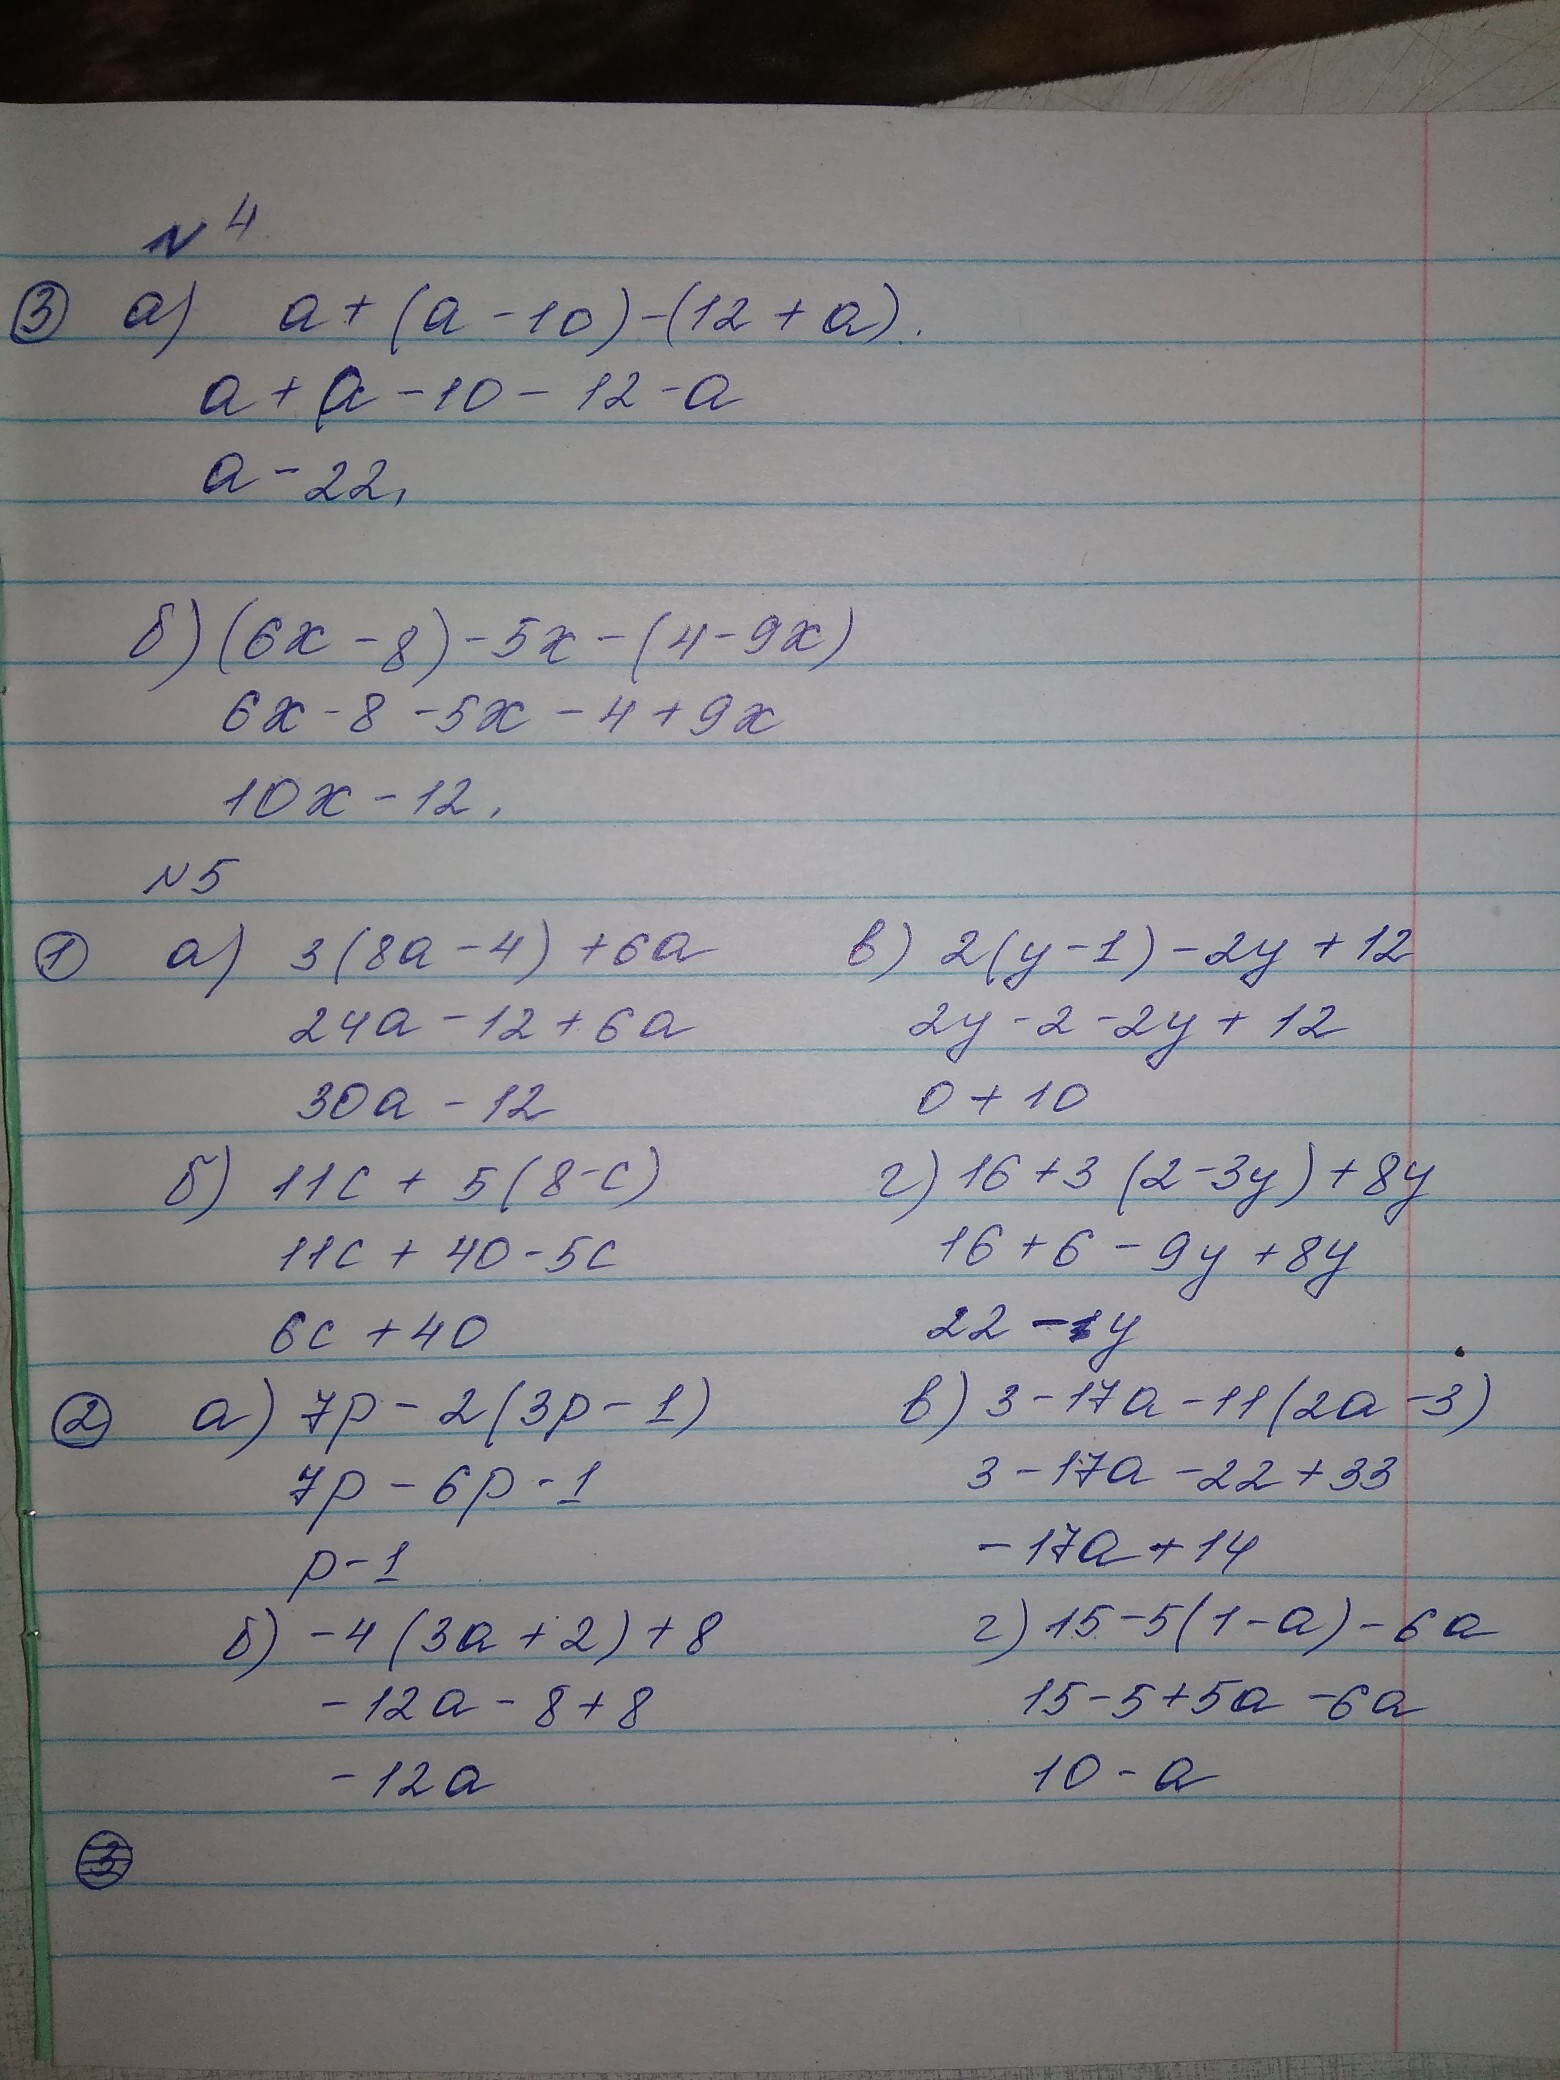 N 4
③ а) a + (a - 10) - (12 + a).
a + a - 10 - 12 - a
a - 22,
б) (6x - 8) - 5x - (4 - 9x)
6x - 8 - 5x - 4 + 9x
10x - 12.
N 5
① а) 3(8a - 4) + 6a
24a - 12 + 6a
30a - 12
б) 11c + 5(8 - c)
11c + 40 - 5c
6c + 40
в) 2(y - 1) - 2y + 12
2y - 2 - 2y + 12
0 + 10
г) 16 + 3(2 - 3y) + 8y
16 + 6 - 9y + 8y
22 - 1y
② а) 7p - 2(3p - 1)
7p - 6p - 1
p - 1
б) -4(3a + 2) + 8
-12a - 8 + 8
-12a
в) 3 - 17a - 11(2a - 3)
3 - 17a - 22 + 33
-17a + 14
г) 15 - 5(1 - a) - 6a
15 - 5 + 5a - 6a
10 - a
③